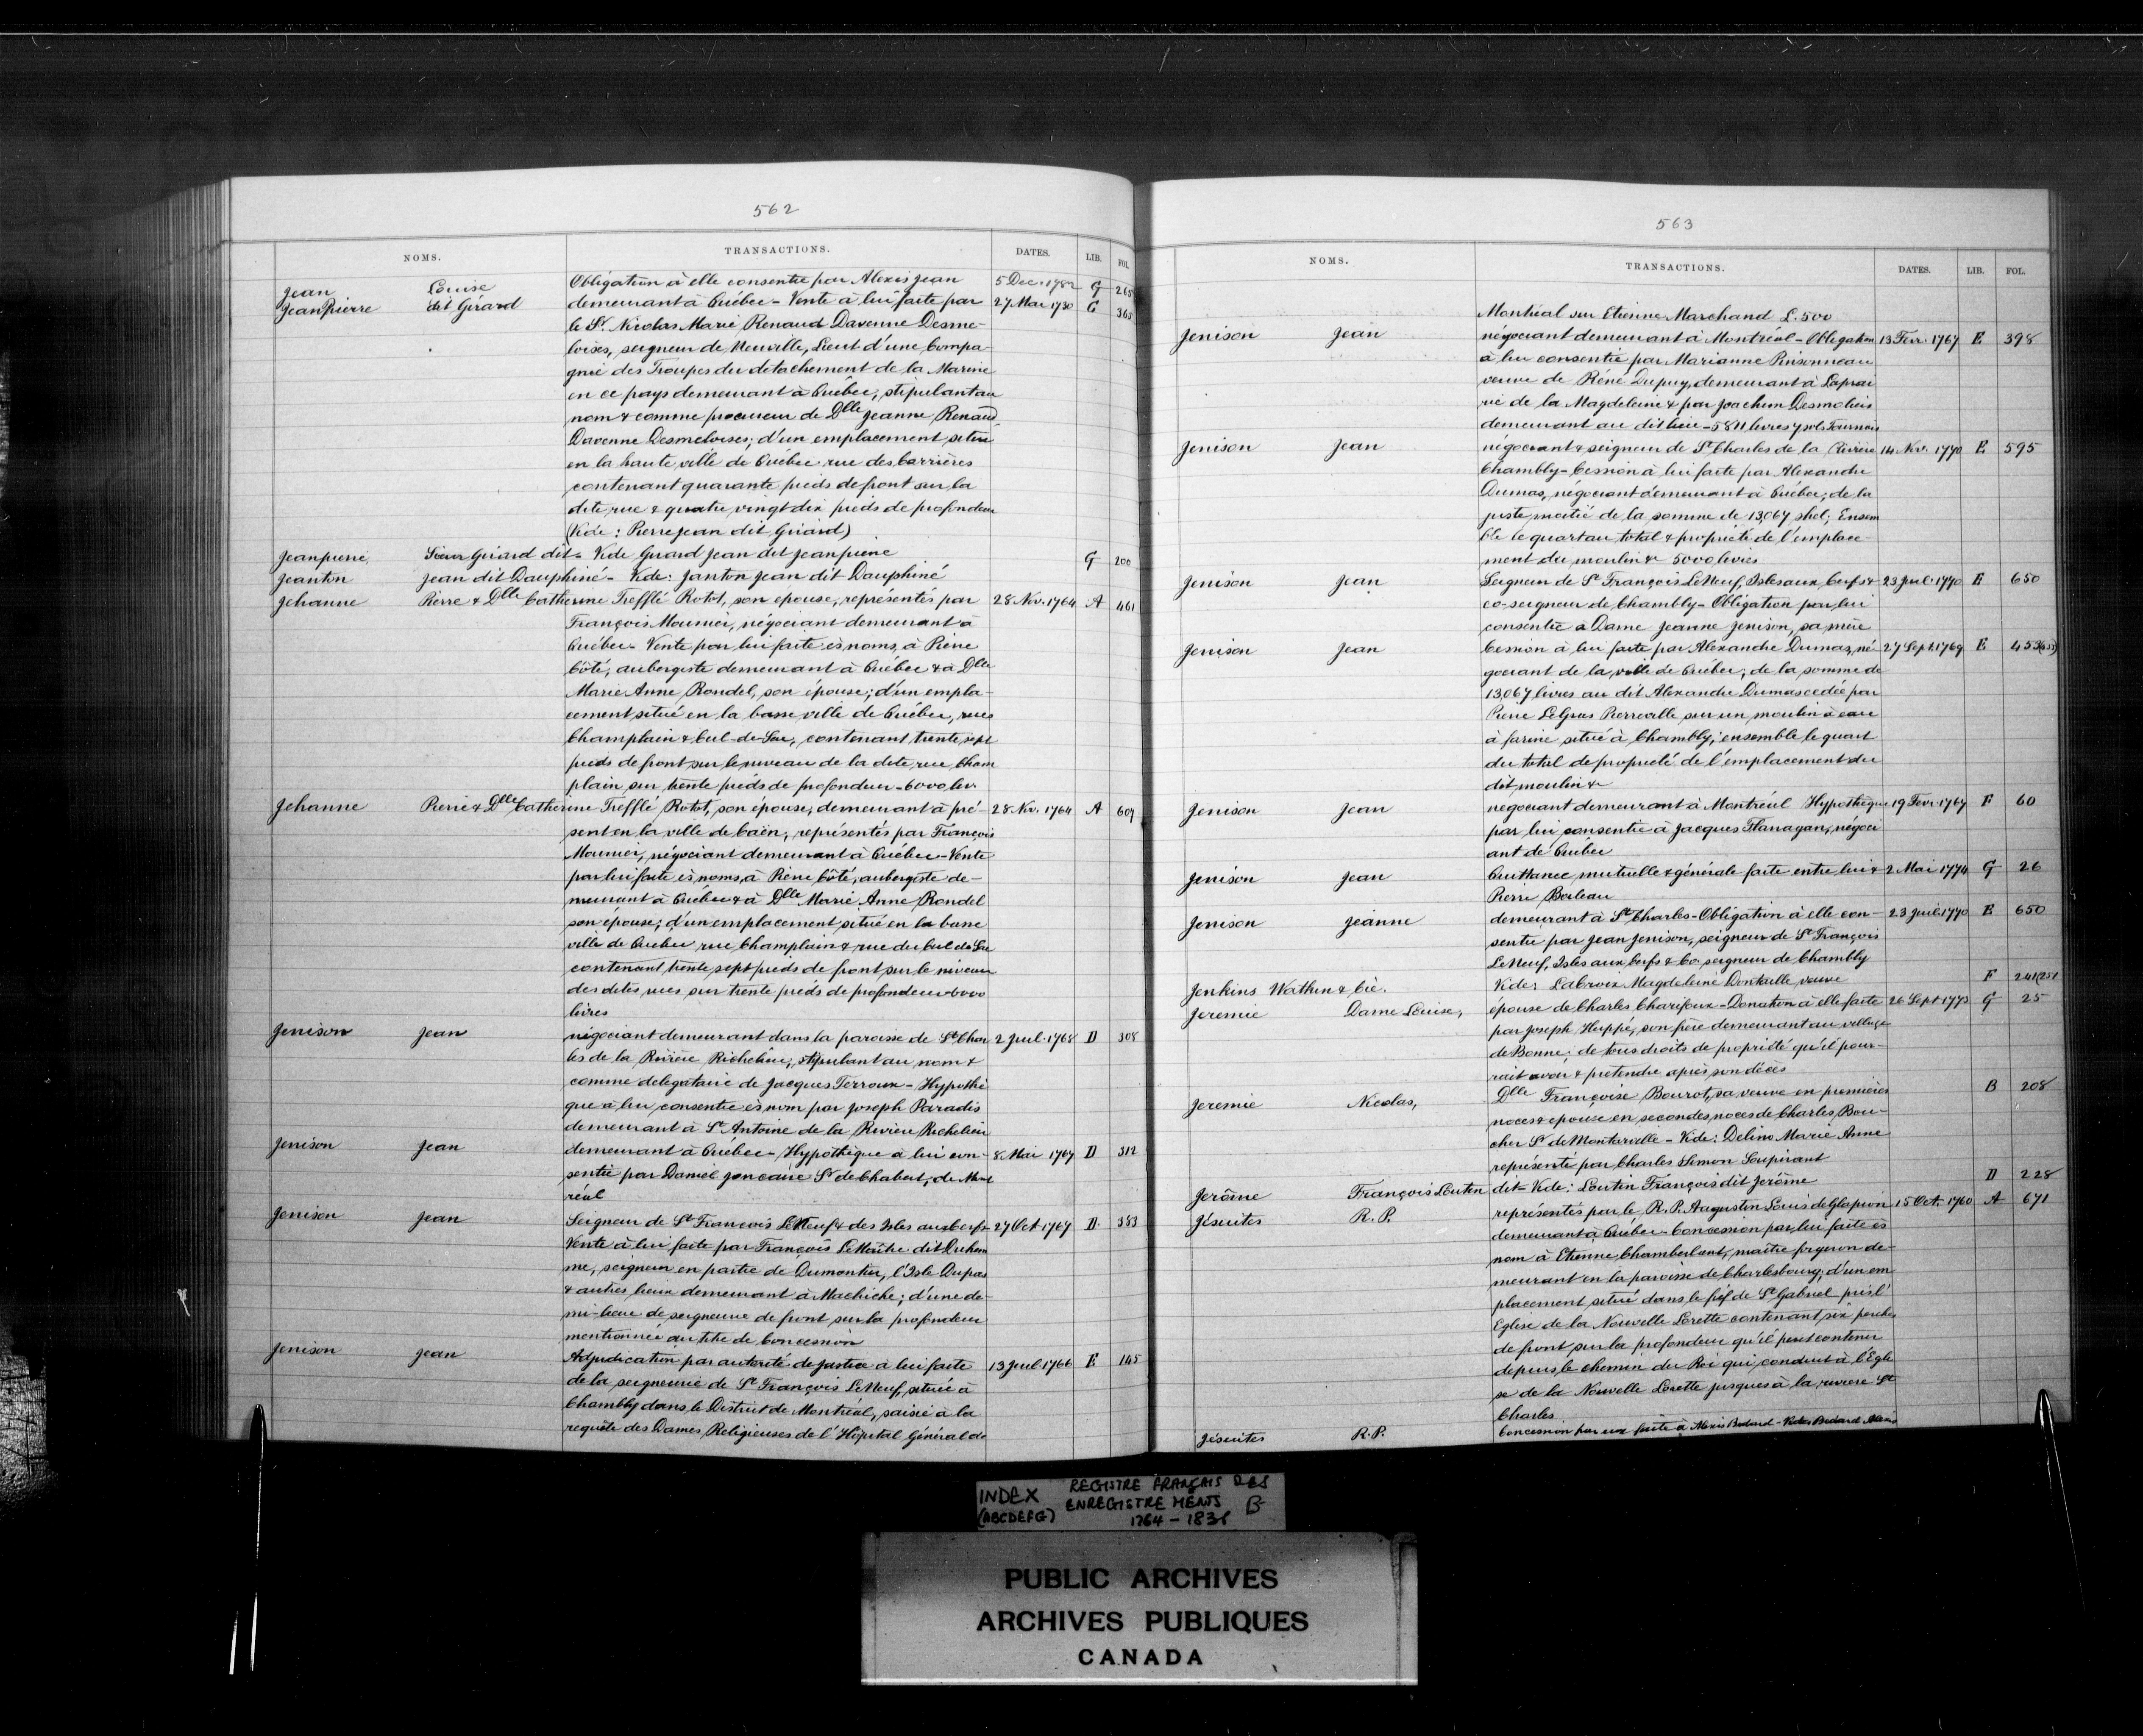 562
NOMS. TRANSACTIONS. DATES. LIB. FOL.
Jean Louise Obligation à elle consentie par Alexis Jean 5 Dec. 1782 G 265
Jeanpierre dit Girard demeurant à Québec - Vente à lui faite par 27 Mai 1730 G 365
le Sr. Nicolas Marie Renaud Davenne Desme-
loises, seigneur de Neuville, Lieut d'une Compa-
gnie des Troupes du détachement de la Marine
en ce pays demeurant à Québec, stipulant au
nom & comme procureur de Dlle Jeanne Renaud
Davenne Desmeloises; d'un emplacement situé
en la haute ville de Québec rue des barrières
contenant quarante pieds de front sur la
dite rue & quatre vingt dix pieds de profondeur
(Vide: Pierre Jean dit Girard)
Jeanpierre, Girard dit - Vide Girard Jean dit Jeanpierre G 200
Jeanton Jean dit Dauphiné - Vide: Janton Jean dit Dauphiné
Jehanne Pierre & Dlle Catherine Trefflé Rotot, son epouse, représentés par 28 Nov. 1764 A 461
François Mounier, négociant demeurant à
Québec - Vente par lui faite ès noms, à Pierre
Côté, aubergiste demeurant à Québec & à Dlle
Marie Anne Rondel, son épouse; d'un empla-
cement situé en la basse ville de Québec, rues
Champlain & Cul-de-Sac, contenant trente sept
pieds de front sur le niveau de la dite rue Cham
plain sur trente pieds de profondeur - 6000 liv.
Jehanne Pierre & Dlle Catherine Trefflé Rotot, son épouse; demeurant à pré- 28 Nov. 1764 A 609
sent en la ville de Caen, représentés par François
Mounier, négociant demeurant à Québec - Vente
par lui faite ès noms, à Pierre Côté, aubergiste de-
meurant à Québec & à Dlle Marie Anne Rondel
son épouse; d'un emplacement situé en la basse
ville de Quebec rue Champlain & rue du Cul de Sac
contenant trente sept pieds de front sur le niveau
des dites rues sur trente pieds de profondeur 6000
livres
Jenison Jean négociant demeurant dans la paroisse de St Char 2 Juil. 1768 D 308
les de la Rivière Richelieu, stipulant au nom &
comme délégataire de Jacques Terroux - Hypothè
que à lui consentie ès nom par Joseph Paradis
demeurant à St Antoine de la Rivière Richelieu
Jenison Jean demeurant à Québec - Hypothèque à lui con- 8 Mai 1767 D 312
sentie par Daniel Joncaire Sr de Chabert, de Mont
réal
Jenison Jean Seigneur de St François LeNeuf & des Isles aux Cerfs - 27 Oct 1767 D. 383
Vente à lui faite par François LeMaître dit Duhem
me, seigneur en partie de Dumontier, l'Isle Dupas
& autres lieux demeurant à Machiche; d'une de-
mi-lieue de seigneurie de front sur la profondeur
mentionnée au titre de Concession
Jenison Jean Adjudication par autorité de justice à lui faite 13 Juil. 1766 E 145
de la seigneurie de St François LeNeuf, située à
Chambly dans le District de Montréal, saisie à la
requête des Dames Religieuses de l'Hôpital Général de
563
NOMS. TRANSACTIONS. DATES. LIB. FOL.
Montréal sur Etienne Marchand L. 500
Jenison Jean négociant demeurant à Montréal - Obligation 13 Fevr. 1767 E 398
à lui consentie par Marianne Pinsonneau
veuve de Réné Dupuy, demeurant à Laprai
rie de la Magdeleine & par Joachim Desmolieis
demeurant au dit lieu - livres sols Tournois
Jenison Jean négociant & seigneur de St Charles de la Rivière 14 Nov. 1770 E 595
Chambly - Cession à lui faite par Alexandre
Dumas, négociant demeurant à Québec; de la
juste moitié de la somme de 13,067 shel; Ensem
ble le quart au total & propriété de l'emplace-
ment du moulin & 5000 livres
Jenison Jean Seigneur de St François LeNeuf, Isles aux Cerfs & 23 Juil. 1770 E 650
co-seigneur de Chambly - Obligation par lui
consentie à Dame Jeanne Jenison, sa mère
Jenison Jean Cession à lui faite par Alexandre Dumas, né 27 Sept. 1769 E 453
gociant de la ville de Québec; de la somme de
13,067 livres au dit Alexandre Dumas cedée par
Pierre LeGras Pierreville sur un moulin à eau
à farine situé à Chambly; ensemble le quart
du total de propriété de l'emplacement du
dit moulin &
Jenison Jean negociant demeurant à Montréal Hypothèque 19 Fevr. 1767 F 60
par lui consentie à Jacques Flanagan, négoci
ant de Québec
Jenison Jean Quittance mutuelle & générale faite entre lui & 2 Mai 1774 G 26
Pierre Barleau
Jenison Jeanne demeurant à St Charles - Obligation à elle con- 23 Juil. 1770 E 650
sentie par Jean Jenison, seigneur de St François
LeNeuf, Isles aux Cerfs & Co. seigneur de Chambly
Jenkins Wathen & Cie. Vide: LaCroix Magdeleine Dontaille veuve F 241(251
Jeremie Dame Louise, épouse de Charles Charifoux - Donation à elle faite 26 Sept 1773 G 25
par Joseph Huppé, son père demeurant au village
de Bonne; de tous droits de propriété qu'il pour-
rait avoir & prétendre après son décès
Jeremie Nicolas, Dlle Françoise Bourot, sa veuve en premières B 208
noces & épouse en secondes noces de Charles Bou-
cher Sr de Montarville - Vide: Delino Marie Anne
représenté par Charles Simon Soupirant
Jerôme François Loutin dit - Vide: Loutin François dit Jérôme D 228
Jésuites R.P. représentés par le R.P. Augustin Louis de Glapion 15 Oct. 1760 A 671
demeurant à Québec - Concession par lui faite ès
nom à Etienne Chamberlant, maître forgeron de-
meurant en la paroisse de Charlesbourg; d'un em
placement situé dans le fief de St Gabriel près l'
Eglise de la Nouvelle Lorette contenant six perches
de front sur la profondeur qu'il peut contenir
depuis le chemin du Roi qui conduit à l'Egli
se de la Nouvelle Lorette jusques à la riviere St
Charles
Jésuites R.P. Concession par eux faite à Alexis Bedard - Vide: Bedard Alexis
INDEX REGISTRE FRANÇAIS DES
(ABCDEFG) ENREGISTREMENTS B
1764 - 1831
PUBLIC ARCHIVES
ARCHIVES PUBLIQUES
CANADA